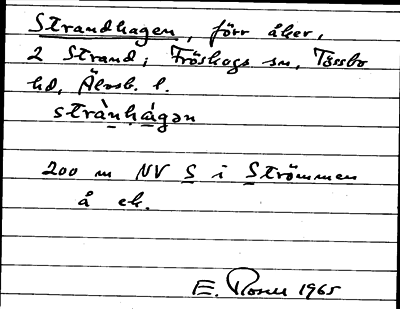 Strandhagen, förr åker,
2 Strand, Fröskogs sn, Tössbo
hd, Älvsb. l.
stràn̲há̲gən
200 m NV S̲ i S̲trömmen
å ek.
E. Rosell 1965